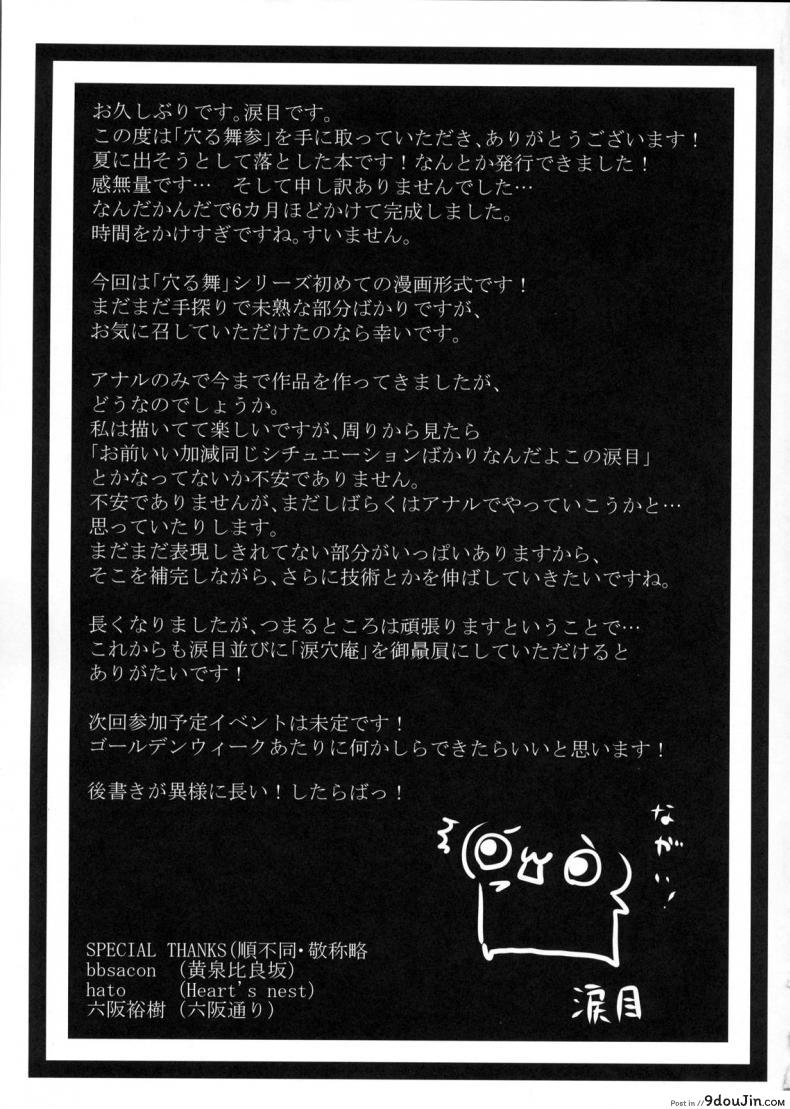 お久しぶりです。涙目です。
この度は「穴る舞参」を手に取っていただき、ありがとうございます！
夏に出そうとして落とした本です！なんとか発行できました！
感無量です…　そして申し訳ありませんでした…
なんだかんだで6カ月ほどかけて完成しました。
時間をかけすぎですね。すいません。
今回は「穴る舞」シリーズ初めての漫画形式です！
まだまだ手探りで未熟な部分ばかりですが、
お気に召していただけたのなら幸いです。
アナルのみで今まで作品を作ってきましたが、
どうなのでしょうか。
私は描いてて楽しいですが、周りから見たら
「お前いい加減同じシチュエーションばかりなんだよこの涙目」
とかなってないか不安でありません。
不安でありませんが、まだしばらくはアナルでやっていこうかと…
思っていたりします。
まだまだ表現しきれてない部分がいっぱいありますから、
そこを補完しながら、さらに技術とかを伸ばしていきたいですね。
長くなりましたが、つまるところは頑張りますということで…
これからも涙目並びに「涙穴庵」を御贔屓にしていただけると
ありがたいです！
次回参加予定イベントは未定です！
ゴールデンウィークあたりに何かしらできたらいいと思います！
後書きが異様に長い！したらばっ！
ながい！
SPECIAL THANKS(順不同・敬称略
bbsacon　(黄泉比良坂)
hato　　(Heart's nest)
六阪裕樹 (六阪通り)
涙目
Post in // 9douJin.com